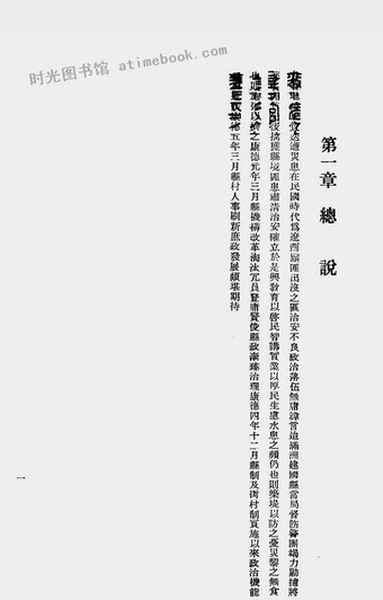 时光图书馆 atimebook.com
第一章 總 說
遭遇災患在民國時代爲遼西鬍匪出沒之區治安不良政治落伍無庸諱言迨滿洲建國縣當局督飭警團竭力勦捕將
後擒獲縣境匪患肅清治安確立於是興敎育以啓民智講實業以厚民生慮水患之頻仍也則築堤以防之憂災黎之無食
以濟之康德元年三月縣機構改革淘汰冗員登庸賢俊縣政漸臻治理康德四年十二月縣制及街村制實施以來政治機能
德五年三月縣村人事刷新庶政發展頗堪期待
一